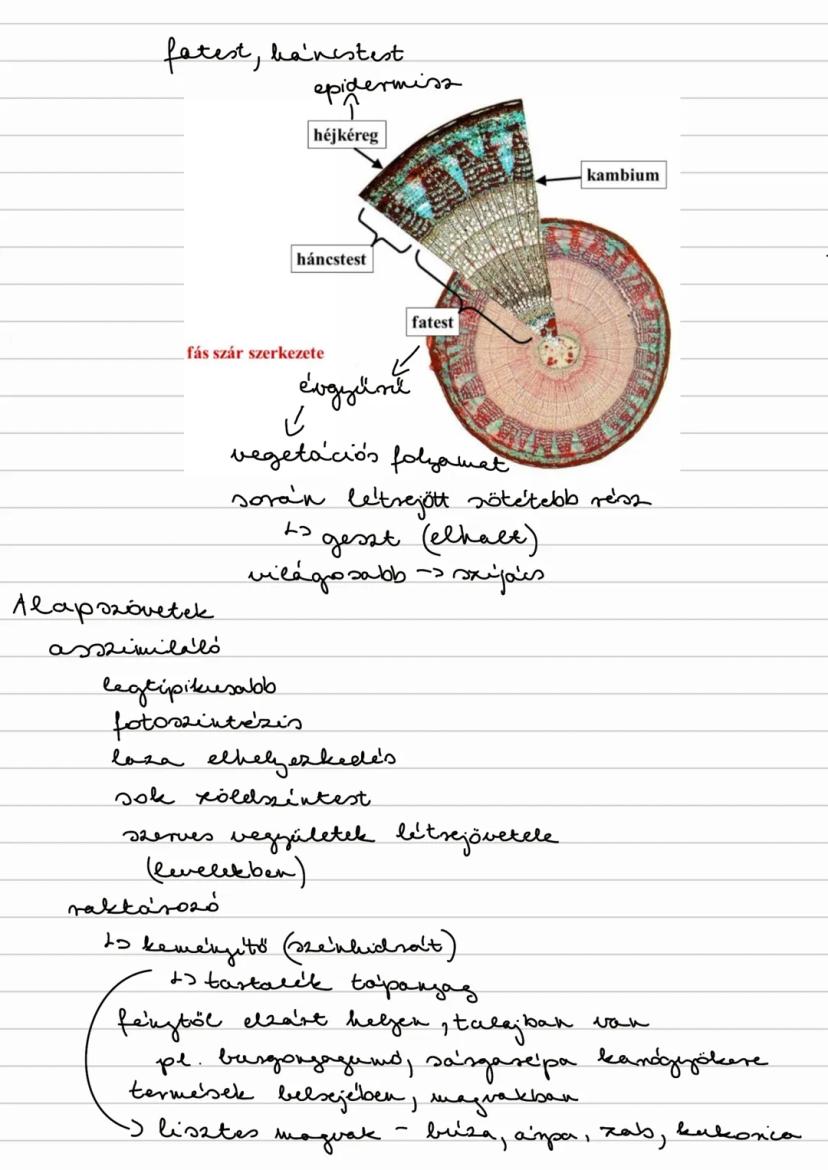 fatest, háncstest
epidermisz
héjkéreg
kambium
háncstest
fatest
fás szár szerkezete
évgyűrű
vegetációs folyamat
során létrejött sötétebb rész
↳ geszt (elhalt)
világosabb → szíjács
Alapszövetek
asszimiláló
legtipikusabb
fotoszintézis
laza elhelyezkedés
sok zöldszíntest
szerves vegyületek létrejövetele
(levelekben)
raktározó
↳ keményítő (szénhidrát)
↳ tartalék tápanyag
fénytől elzárt helyen, talajban van
pl. burgonyagumó, sárgarépa karógyökere
termések belsejében, magvakban
→ lisztes magvak - búza, árpa, zab, kukorica